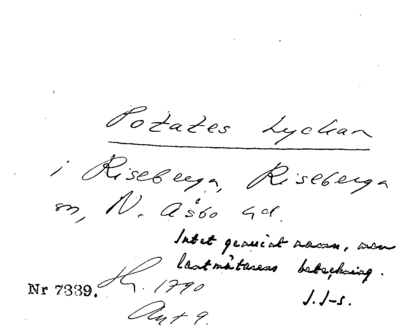 Potates Lyckan
i Riseberga, Riseberga
sn, N. Åsbo hd.
Intet genuint namn, men
lantmätarens beteckning.
Nr 7339. Sk. 1790
J.J-s.
Akt 9.